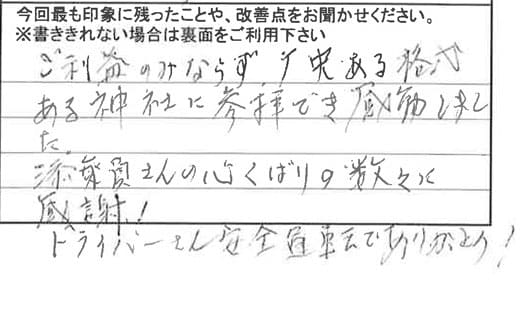 今回最も印象に残ったことや、改善点をお聞かせください。
※書ききれない場合は裏面をご利用下さい
ご利益のみならず歴史ある格式
ある神社に参拝でき感動しまし
た。
添乗員さんの心くばりの数々に
感謝!
ドライバーさん安全運転でありがとう!